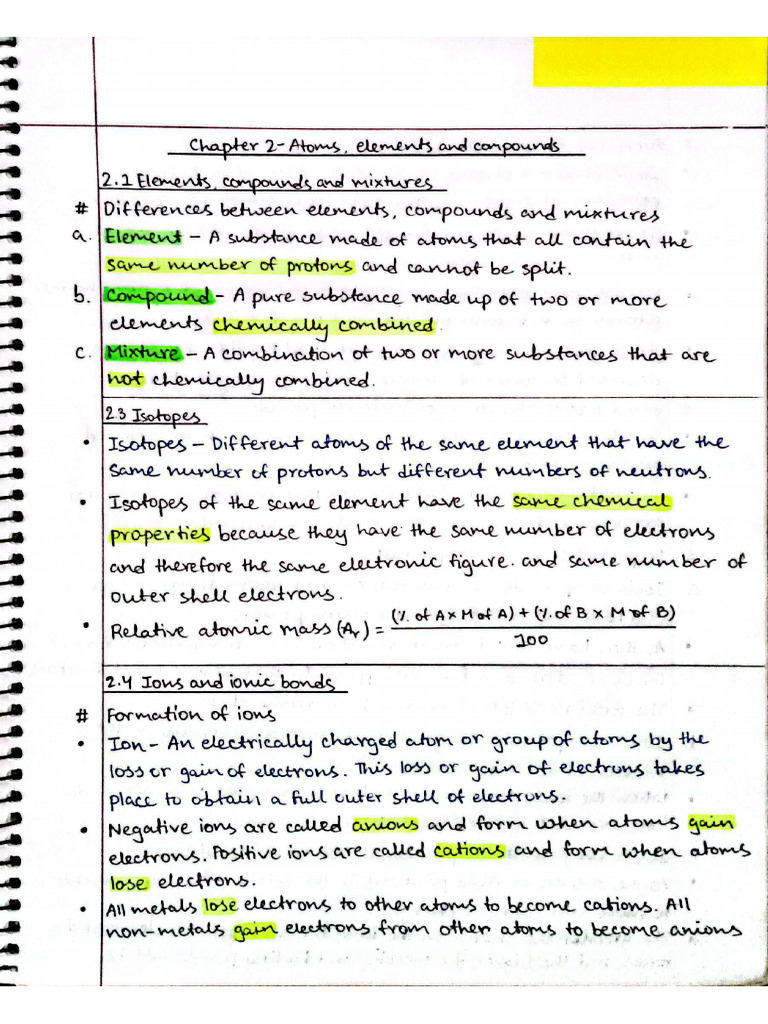 Chapter 2-Atoms, elements and compounds
2.1 Elements, compounds and mixtures
# Differences between elements, compounds and mixtures
a. Element - A substance made of atoms that all contain the
same number of protons and cannot be split.
b. Compound - A pure substance made up of two or more
elements chemically combined.
c. Mixture - A combination of two or more substances that are
not chemically combined.
2.3 Isotopes
• Isotopes - Different atoms of the same element that have the
same number of protons but different numbers of neutrons.
• Isotopes of the same element have the same chemical
properties because they have the same number of electrons
and therefore the same electronic figure. and same number of
outer shell electrons.
• Relative atomic mass (Ar) = (% of A × M of A) + (% of B × M of B)
100
2.4 Ions and ionic bonds
# Formation of ions
• Ion - An electrically charged atom or group of atoms by the
loss or gain of electrons. This loss or gain of electrons takes
place to obtain a full outer shell of electrons.
• Negative ions are called anions and form when atoms gain
electrons. Positive ions are called cations and form when atoms
lose electrons.
• All metals lose electrons to other atoms to become cations. All
non-metals gain electrons from other atoms to become anions